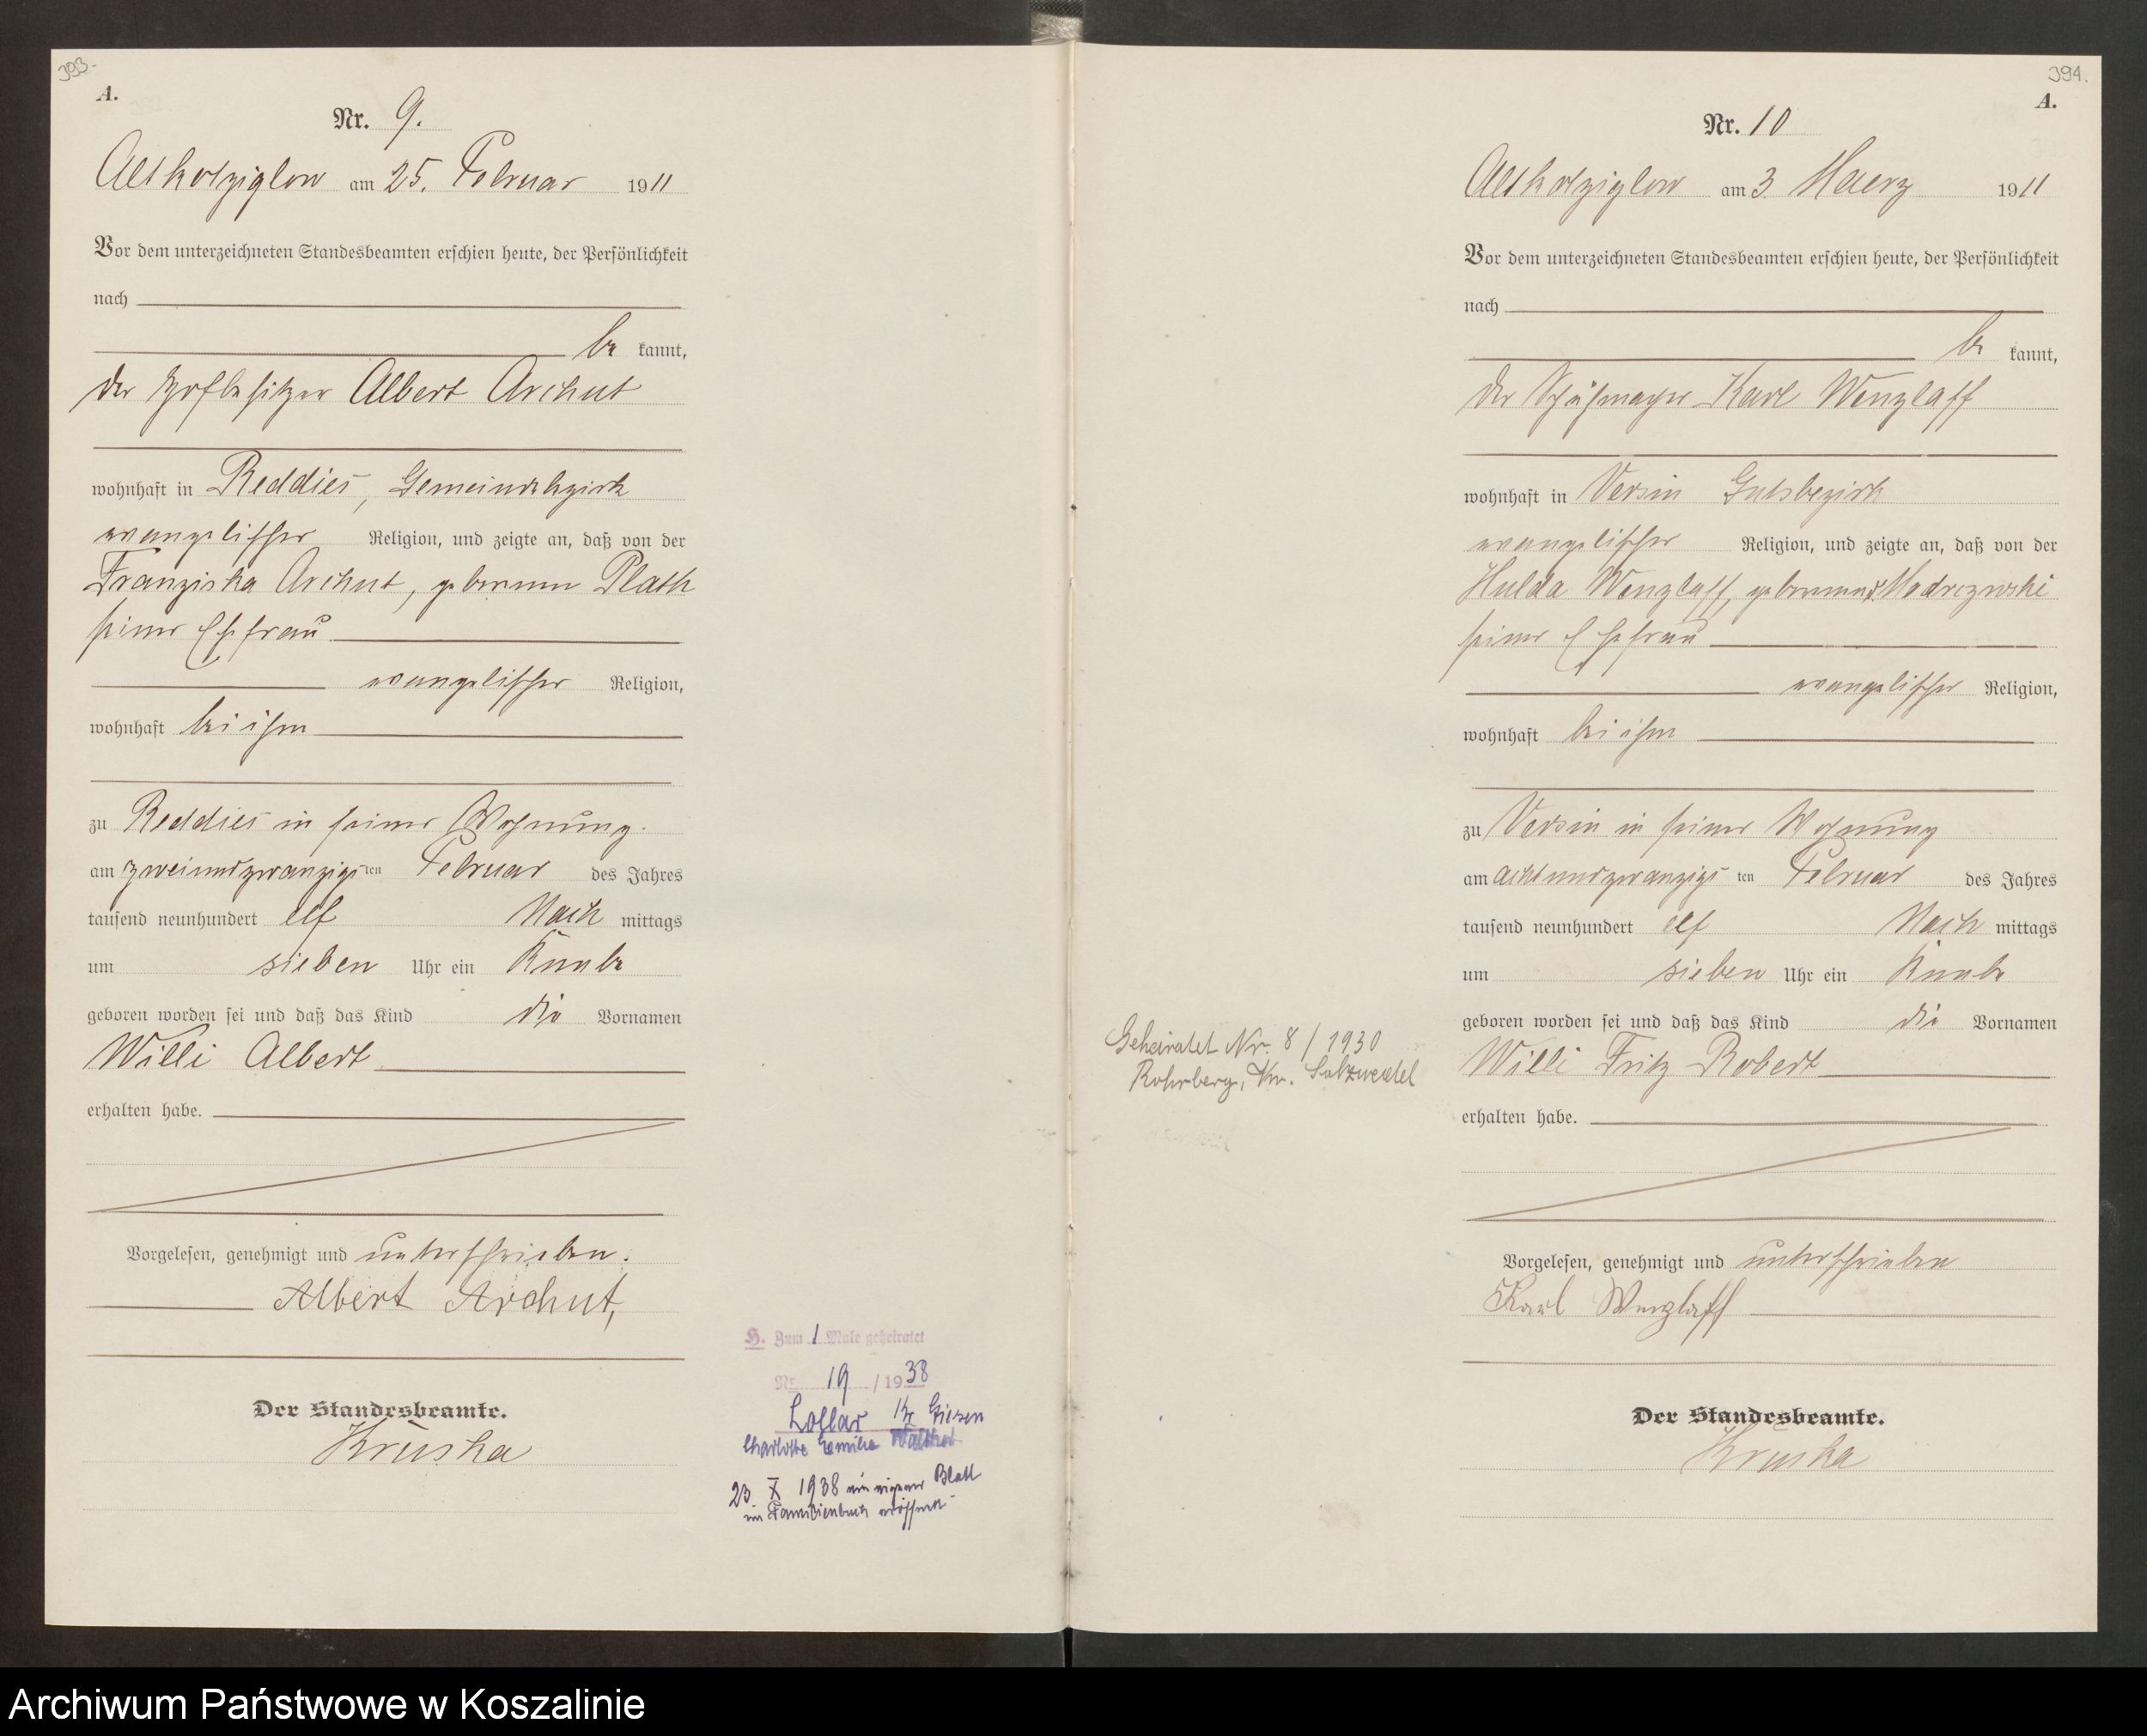 393.
A.
Nr. 9.
Altkolziglow am 25. Februar 1911
Vor dem unterzeichneten Standesbeamten erschien heute, der Persönlichkeit
nach
be kannt,
der Hofbesitzer Albert Archut
wohnhaft in Reddies, Gemeindebezirk
evangelischer Religion, und zeigte an, daß von der
Franziska Archut, geborenen Plath
seiner Ehefrau
evangelischer Religion,
wohnhaft bei ihm
zu Reddies in seiner Wohnung.
am zweiundzwanzigsten Februar des Jahres
tausend neunhundert elf Nach mittags
um sieben Uhr ein Knabe
geboren worden sei und daß das Kind die Vornamen
Willi Albert
erhalten habe.
Vorgelesen, genehmigt und unterschrieben.
Albert Archut,
Der Standesbeamte.
Kruska
H. Zum 1 Male geheiratet
Nr 19 / 1938
Lollar Kr Giesen
Charlotte Emilie
23. X 1938 ein eigener Blatt
im Familienbuch eröffnet
394.
A.
Nr. 10
Altkolziglow am 3. Maerz 1911
Vor dem unterzeichneten Standesbeamten erschien heute, der Persönlichkeit
nach
be kannt,
der Karl Wenzlaff
wohnhaft in Versin Gutsbezirk
evangelischer Religion, und zeigte an, daß von der
Hulda Wenzlaff, geborenen
seiner Ehefrau
evangelischer Religion,
wohnhaft bei ihm
zu Versin in seiner Wohnung
am achtundzwanzigsten Februar des Jahres
tausend neunhundert elf Nach mittags
um sieben Uhr ein Knabe
geboren worden sei und daß das Kind die Vornamen
Willi Fritz Robert
erhalten habe.
Vorgelesen, genehmigt und unterschrieben
Karl Wenzlaff
Der Standesbeamte.
Kruska
Geheiratet Nr. 8 / 1930
Rohrberg, Kr. Salzwedel
Archiwum Państwowe w Koszalinie